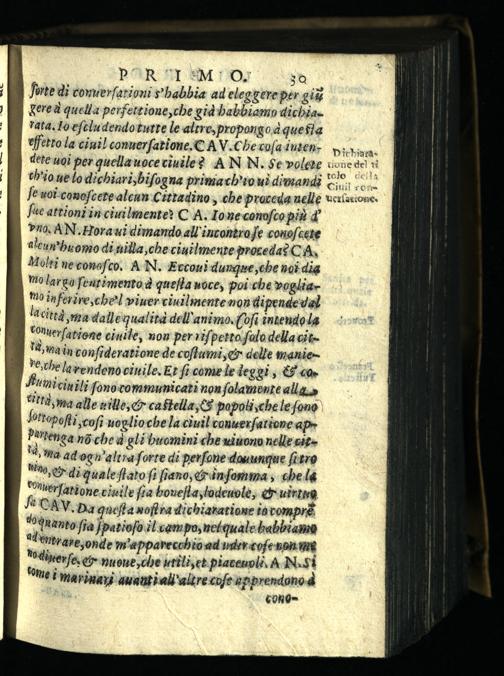 PRIMO. 30
sorte di conuersationi s'habbia ad eleggere per giũ
gere à quella perfettione, che già habbiamo dichia-
rata. Io escludendo tutte le altre, propongo à questa
effetto la ciuil conuersatione. CAV. Che cosa inten-
dete uoi per quella uoce ciuile? ANN. Se volete
ch'io ue lo dichiari, bisogna prima ch'io ui dimandi
se uoi conoscete alcun Cittadino, che proceda nelle
sue attioni in ciuilmente? CA. Io ne conosco più d'
vno. AN. Hora ui dimando all'incontro se conoscete
alcun'huomo di uilla, che ciuilmente proceda? CA.
Molti ne conosco. AN. Eccoui dunque, che noi dia
mo largo sentimento à questa uoce, poi che voglia-
mo inferire, che'l viuer ciuilmente non dipende dal
la città, ma dalle qualità dell'animo. Cosi intendo la
conuersatione ciuile, non per rispetto solo della cit-
tà, ma in consideratione de costumi, & delle manie-
re, che la rendeno ciuile. Et si come le leggi, & co-
stumi ciuili sono communicati non solamente alla
città, ma alle uille, & castella, & popoli, che le sono
sottoposti, cosi uoglio che la ciuil conuersatione ap-
partenga nõ che à gli huomini che uiuono nelle cit-
tà, ma ad ogn'altra sorte di persone douunque si tro
uino, & di quale stato si siano, & insomma, che la
conuersatione ciuile sia honesta, lodeuole, & uirtuo
sa CAV. Da questa nostra dichiaratione io compre
do quanto sia spatioso il campo, nel quale habbiamo
ad entrare, onde m'apparecchio ad udir cose non me
no diuerse, & nuoue, che utili, et piaceuoli. AN. Si
come i marinari auanti all'altre cose apprendono à
cono-
Dichiara-
tione del ti
tolo della
Ciuil con-
uersatione.